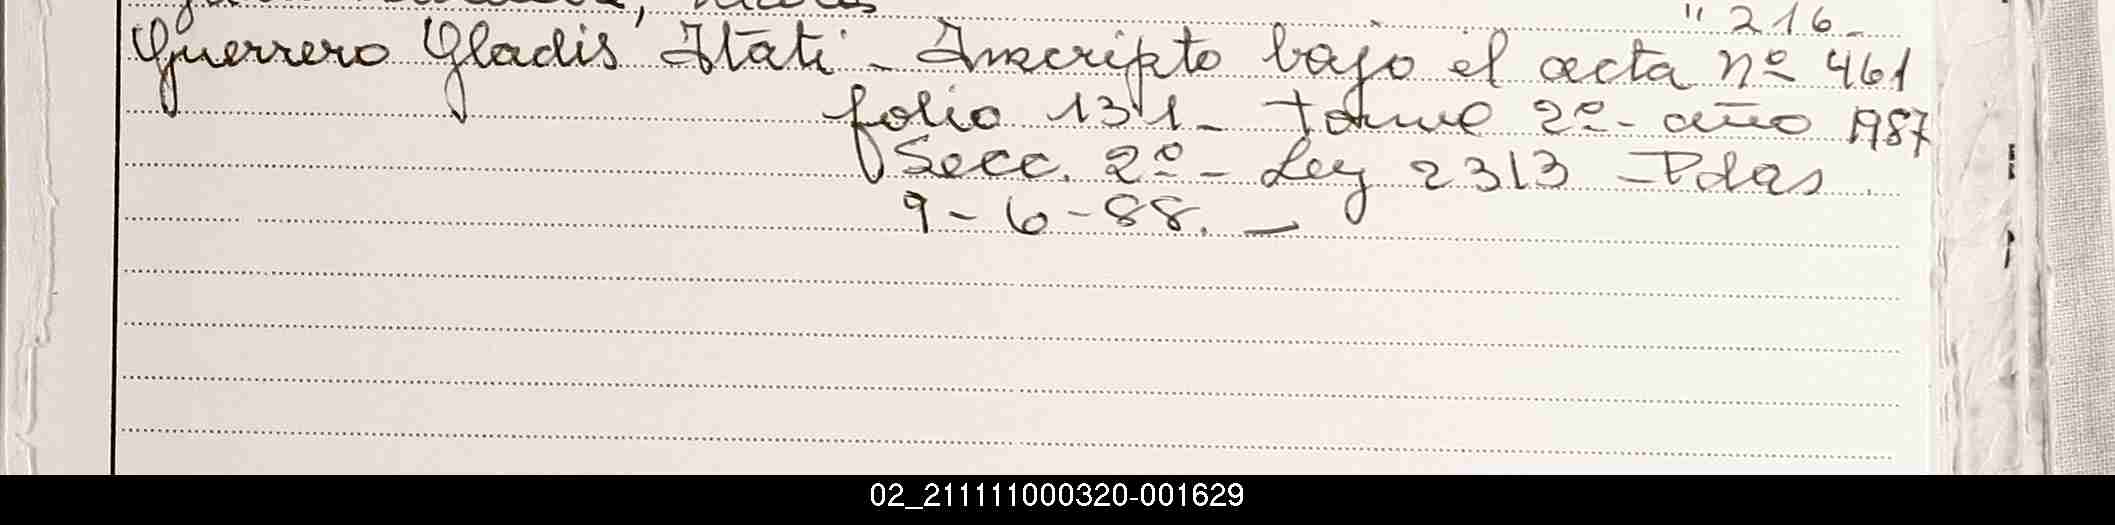 " 216-
Guerrero Gladis Itati - Inscripto bajo el acta nº 461
folio 131 - tomo 2º - año 1987
Secc. 2º - Ley 2313 - Pdas
9-6-88. -
02_211111000320-001629